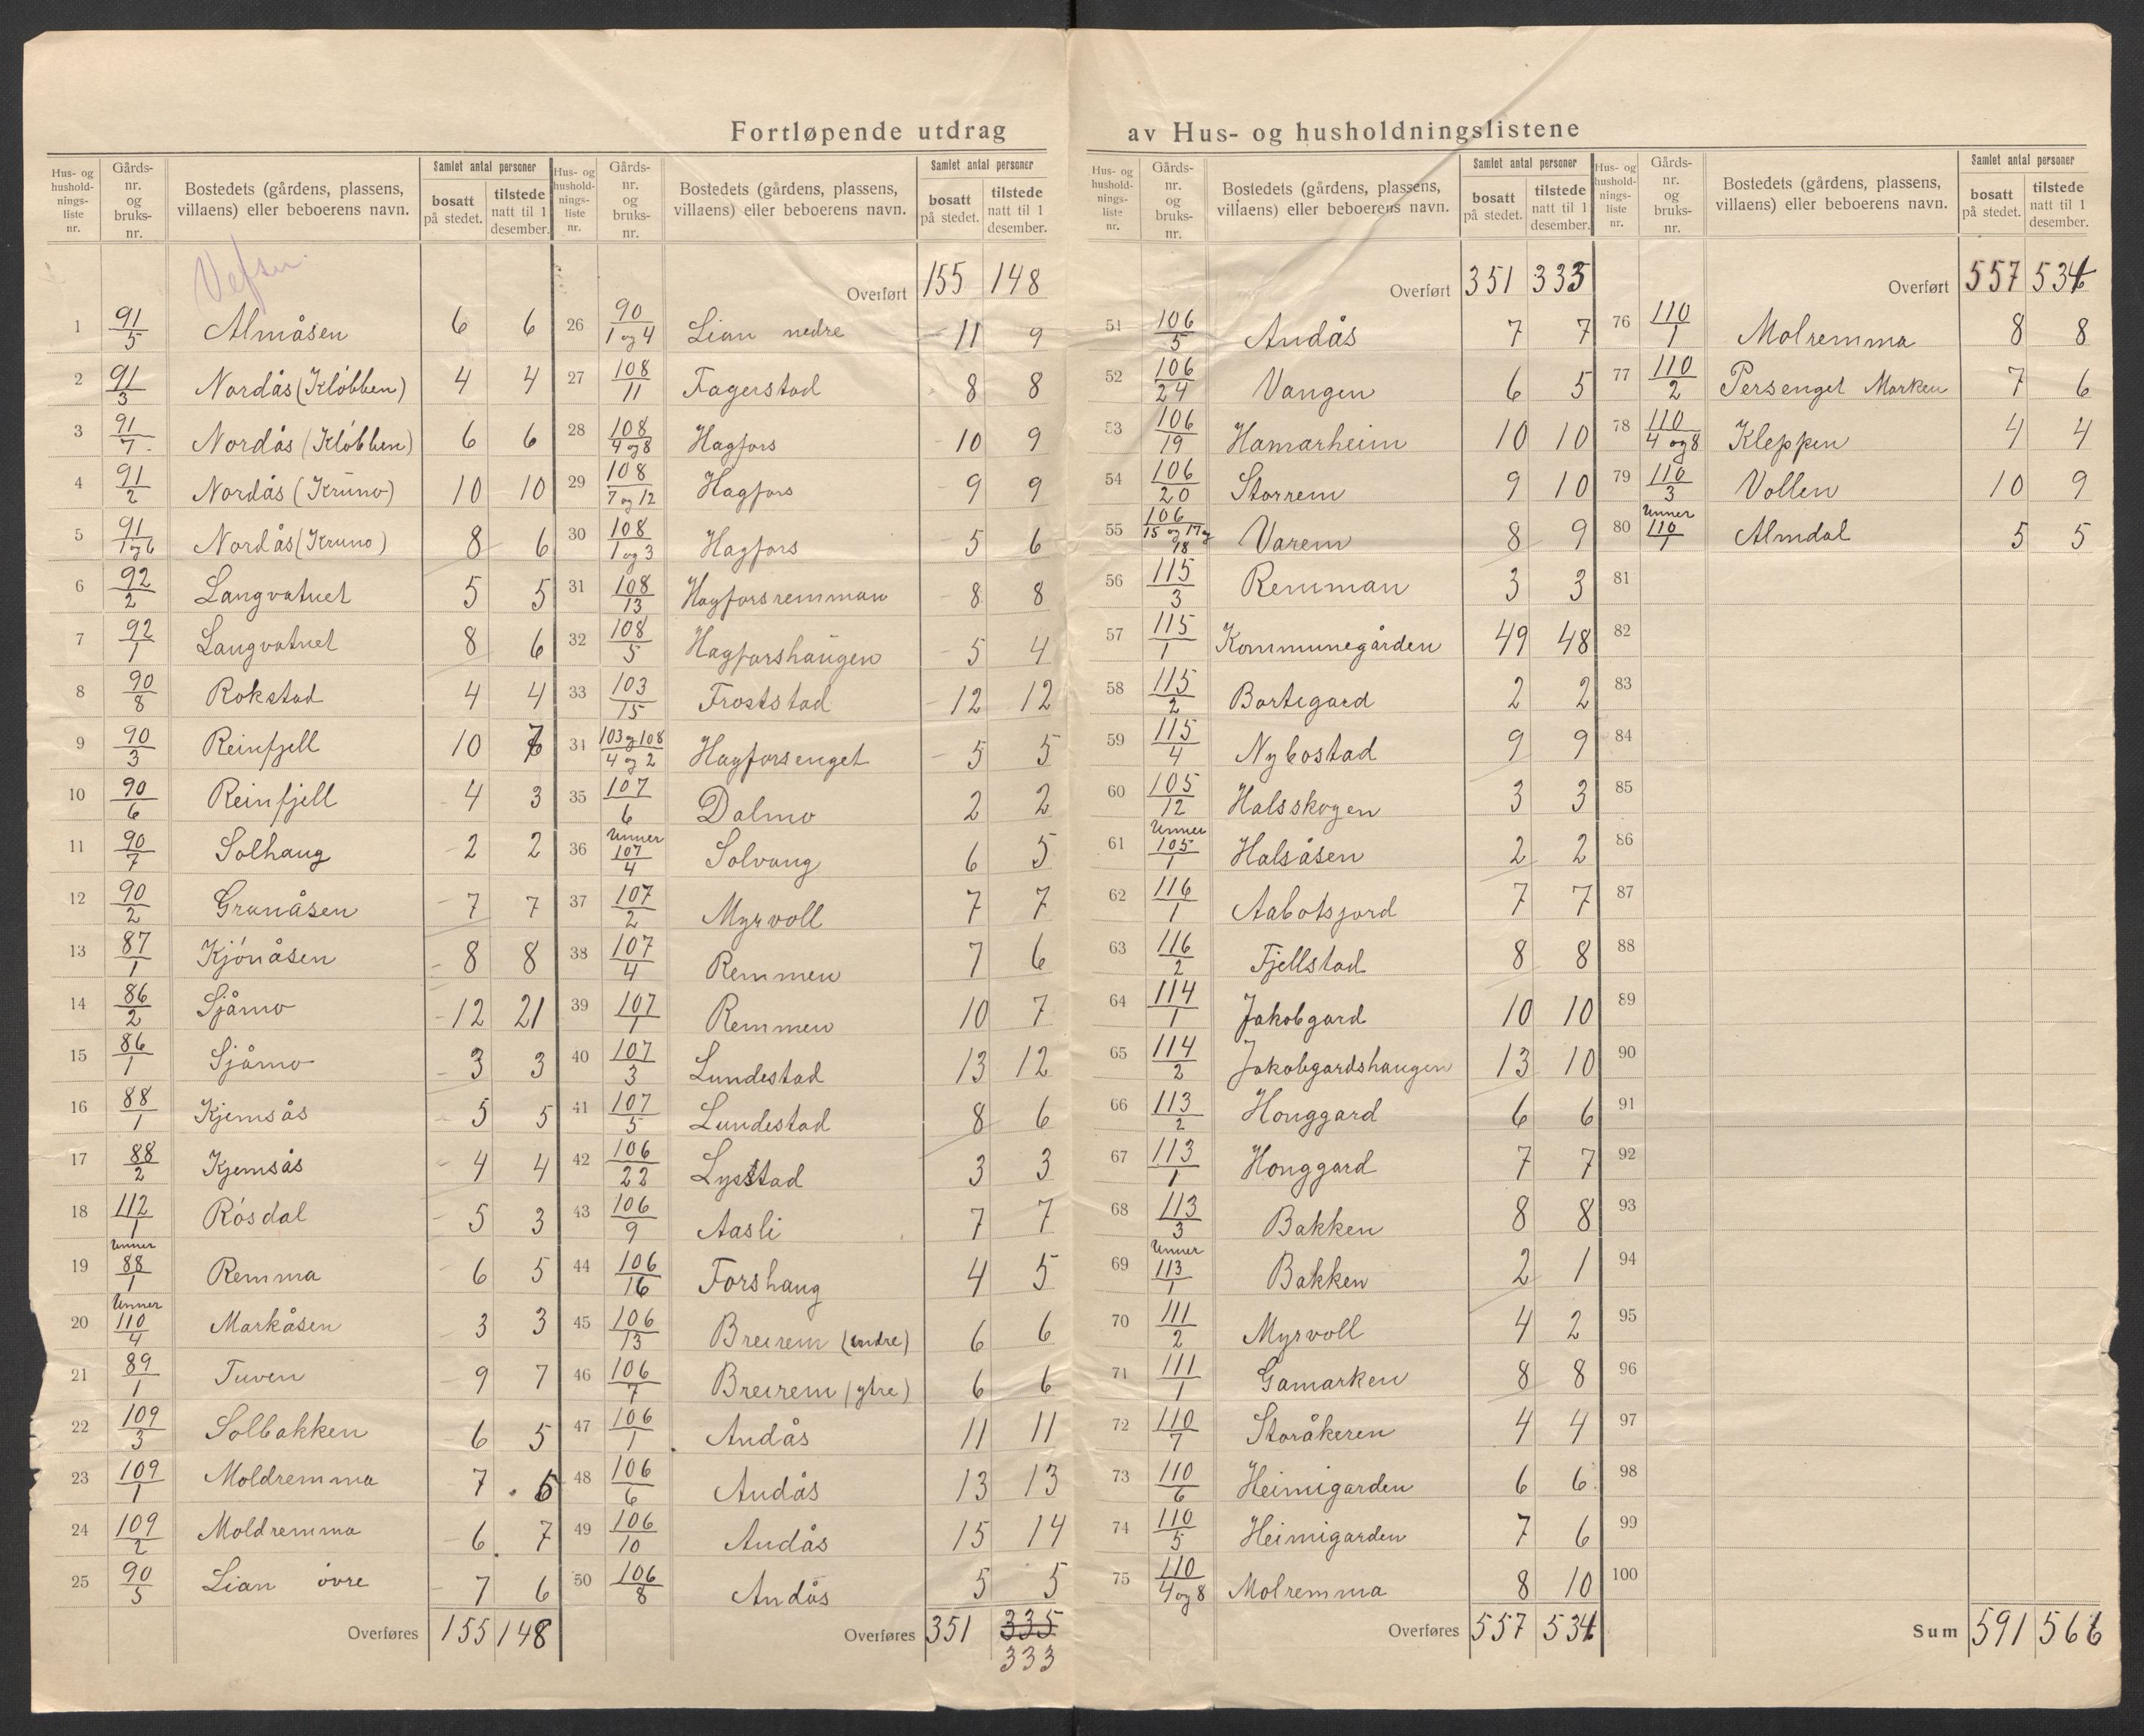 Fortløpende utdrag av Hus- og husholdningslistene
Hus- og hushold-nings-liste nr. | Gårds-nr. og bruks-nr. | Bostedets (gårdens, plassens, villaens) eller beboerens navn. | Samlet antal personer bosatt på stedet. | tilstede natt til 1 desember.
Vefsn.
1 91/5 Almåsen 6 6
2 91/3 Nordås (Kløbben) 4 4
3 91/7 Nordås (Kløbben) 6 6
4 91/2 Nordås (Kruno) 10 10
5 91/1 og 6 Nordås (Kruno) 8 6
6 92/2 Langvatnet 5 5
7 92/1 Langvatnet 8 6
8 90/8 Rokstad 4 4
9 90/3 Reinfjell 10
10 90/6 Reinfjell 4 3
11 90/7 Solhaug 2 2
12 90/2 Granåsen 7 7
13 87/1 Kjónåsen 8 8
14 86/2 Sjåmo 12 21
15 86/1 Sjåmo 3 3
16 88/1 Kjemsås 5 5
17 88/2 Kjemsås 4 4
18 112/1 Rósdal 5 3
19 Unner 88/1 Remma 6 5
20 Unner 110/4 Markåsen 3 3
21 89/1 Tuven 9 7
22 109/3 Solbakken 6 5
23 109/1 Moldremma 7
24 109/2 Moldremma 6 7
25 90/5 Lian óvre 7 6
Overføres 155 148
Hus- og hushold-nings-liste nr. | Gårds-nr. og bruks-nr. | Bostedets (gårdens, plassens, villaens) eller beboerens navn. | Samlet antal personer bosatt på stedet. | tilstede natt til 1 desember.
Overført 155 148
26 90/1 og 4 Lian nedre 11 9
27 108/11 Fagerstad 8 8
28 108/4 og 8 Hagfors 10 9
29 108/7 og 12 Hagfors 9 9
30 108/1 og 3 Hagfors 5 6
31 108/13 Hagforsremman 8 8
32 108/5 Hagforshaugen 5 4
33 103/15 Froststad 12 12
34 103 og 108/4 og 2 Hagforsenget 5 5
35 107/6 Dalmo 2 2
36 Unner 107/4 Solvang 6 5
37 107/2 Myrvoll 7 7
38 107/4 Remmen 7 6
39 107/1 Remmen 10 7
40 107/3 Lundestad 13 12
41 107/5 Lundestad 8 6
42 106/22 Lysstad 3 3
43 106/9 Aasli 7 7
44 106/16 Forshaug 4 5
45 106/13 Breirem (indre) 6 6
46 106/7 Breirem (ytre) 6 6
47 106/1 Andås 11 11
48 106/6 Andås 13 13
49 106/10 Andås 15 14
50 106/8 Andås 5 5
Overføres 351 335
333
Hus- og hushold-nings-liste nr. | Gårds-nr. og bruks-nr. | Bostedets (gårdens, plassens, villaens) eller beboerens navn. | Samlet antal personer bosatt på stedet. | tilstede natt til 1 desember.
Overført 351 333
51 106/5 Andås 7 7
52 106/24 Vangen 6 5
53 106/19 Hamarheim 10 10
54 106/20 Storrem 9 10
55 106/15 og 17 og 18 Varem 8 9
56 115/3 Remman 3 3
57 115/1 Kommunegården 49 48
58 115/2 Bortegard 2 2
59 115/4 Nybostad 9 9
60 105/12 Halsskogen 3 3
61 Unner 105/1 Halsåsen 2 2
62 116/1 Aabotsjord 7 7
63 116/2 Fjellstad 8 8
64 114/1 Jakobgard 10 10
65 114/2 Jakobgardshaugen 13 10
66 113/2 Honggard 6 6
67 113/1 Honggard 7 7
68 113/3 Bakken 8 8
69 Unner 113/1 Bakken 2 1
70 111/2 Myrvoll 4 2
71 111/1 Gamarken 8 8
72 110/7 Storåkeren 4 4
73 110/6 Heimigarden 6 6
74 110/5 Heimigarden 7 6
75 110/4 og 8 Molremma 8 10
Overføres 557 534
Hus- og hushold-nings-liste nr. | Gårds-nr. og bruks-nr. | Bostedets (gårdens, plassens, villaens) eller beboerens navn. | Samlet antal personer bosatt på stedet. | tilstede natt til 1 desember.
Overført 557 534
76 110/1 Molremma 8 8
77 110/2 Persenget Marken 7 6
78 110/4 og 8 Kleppen 4 4
79 110/3 Vollen 10 9
80 Unner 110/1 Almdal 5 5
81
82
83
84
85
86
87
88
89
90
91
92
93
94
95
96
97
98
99
100
Sum 591 566